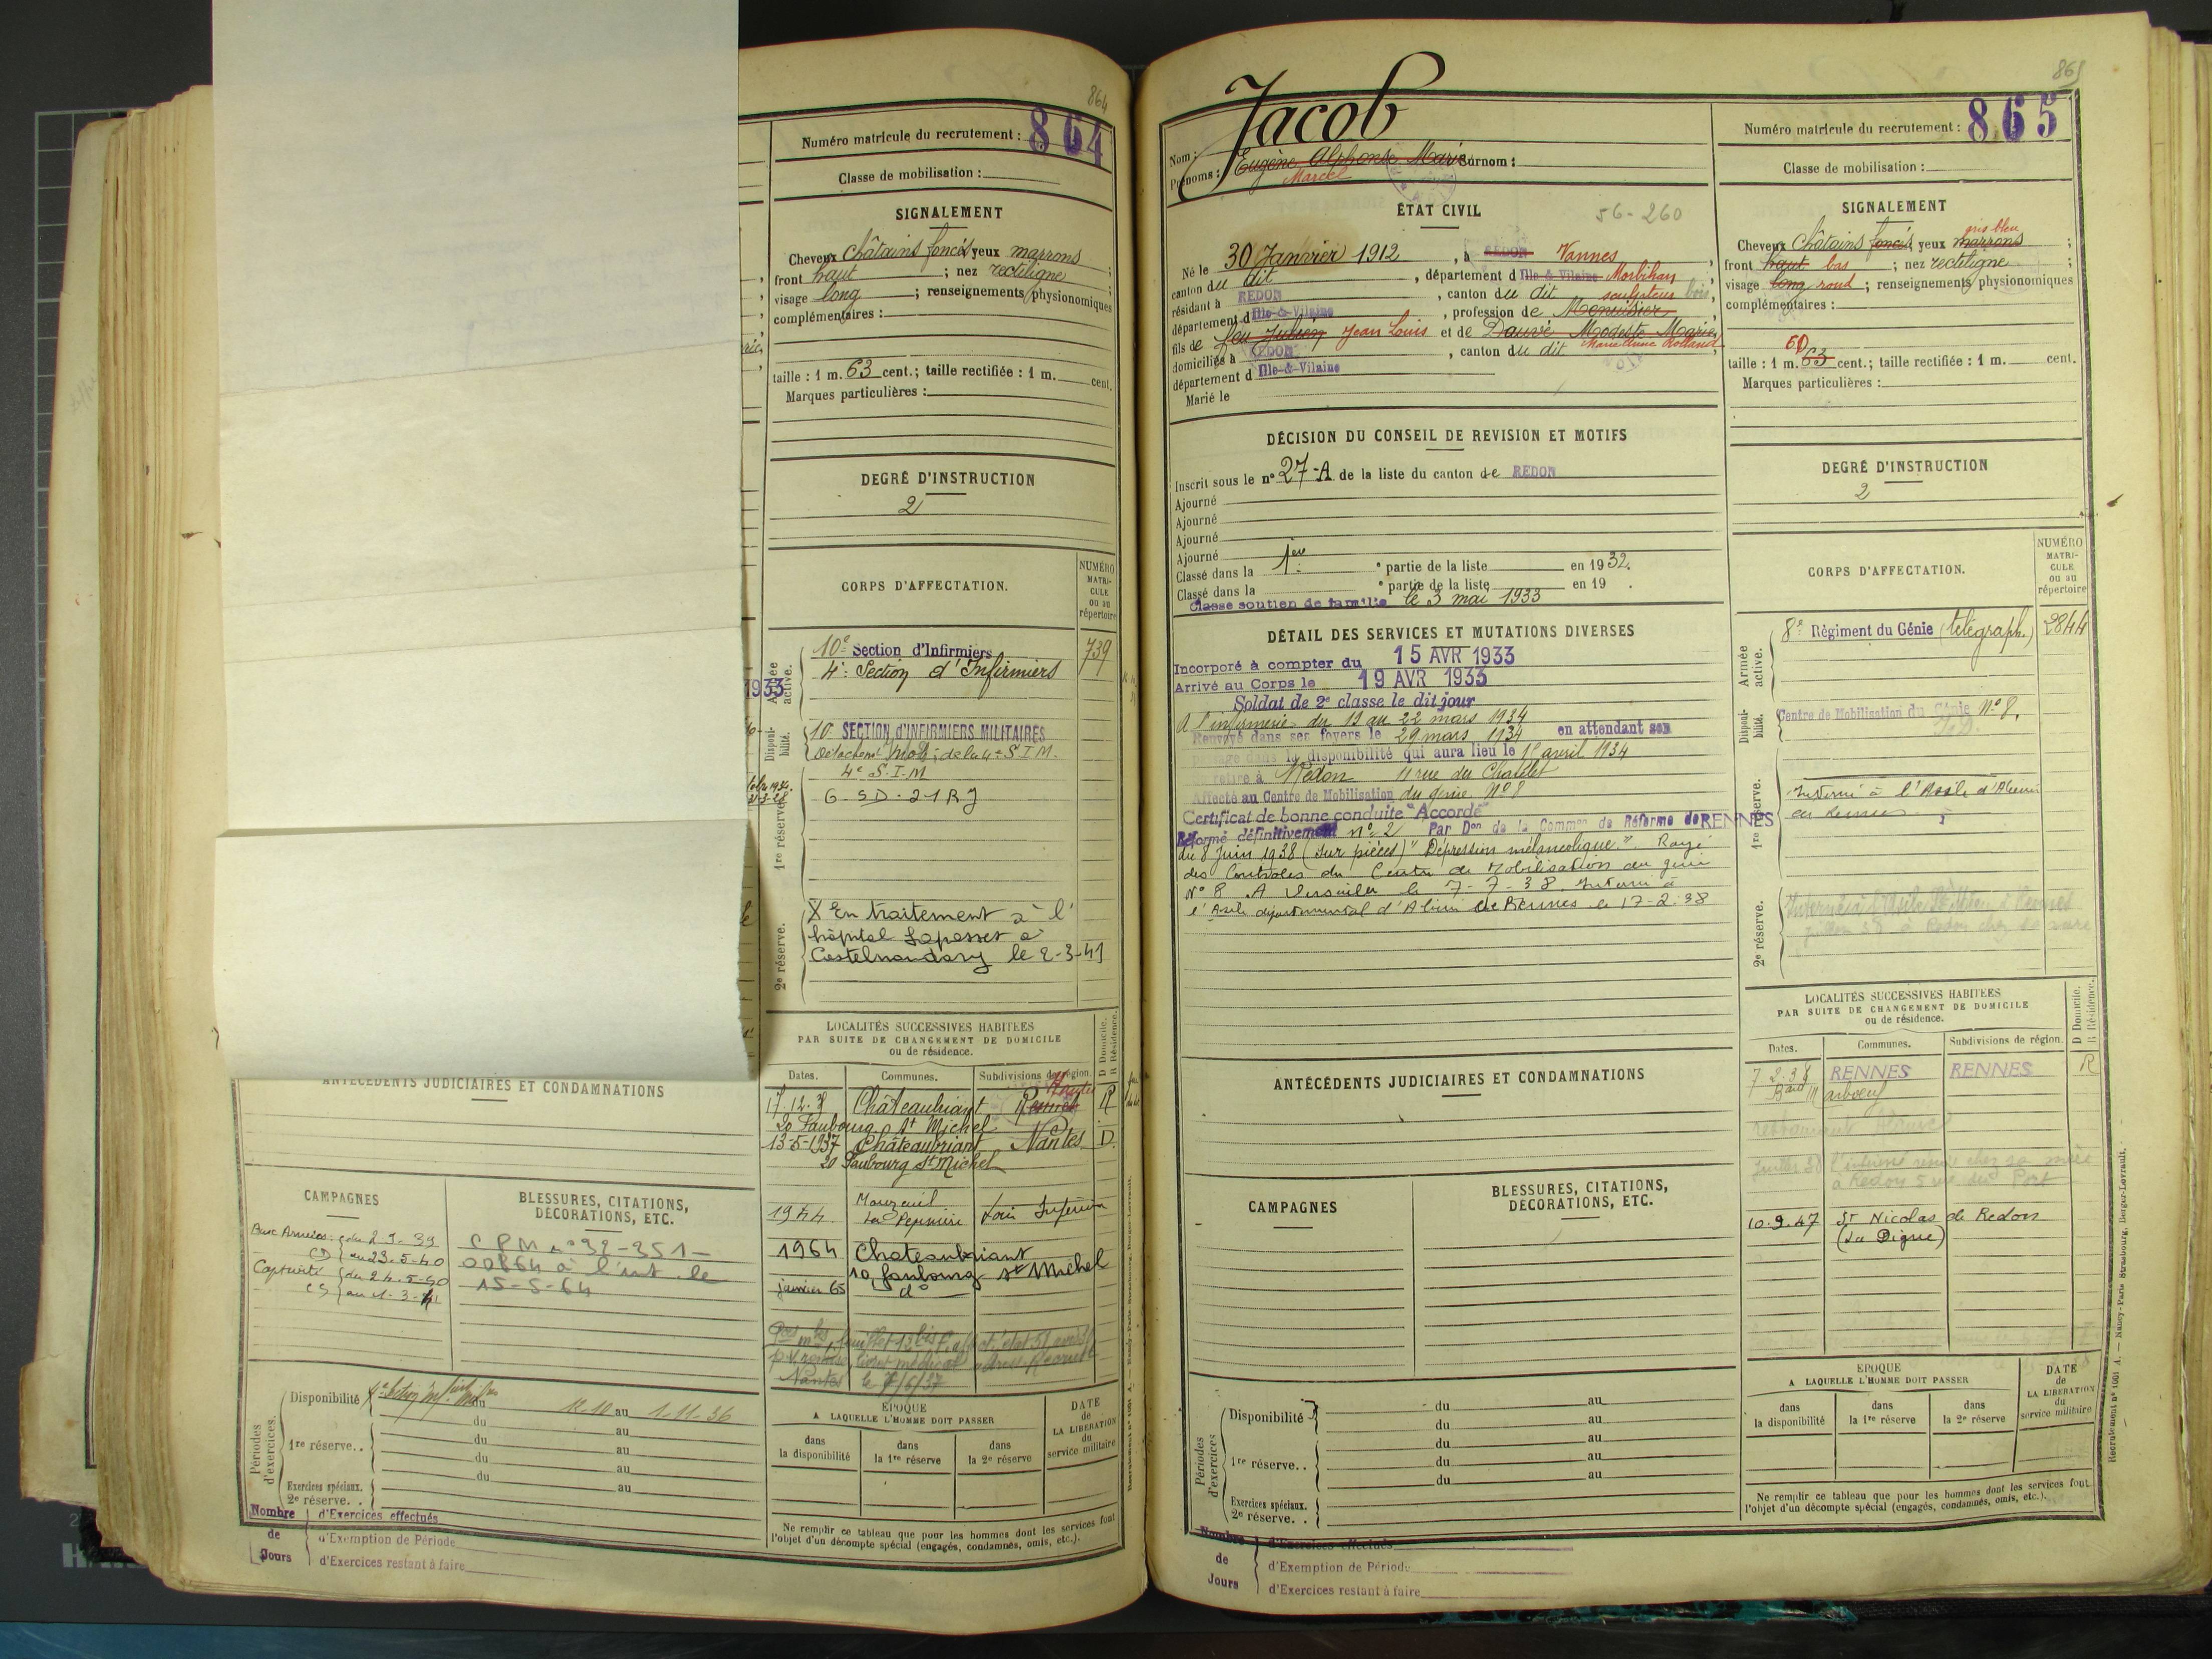 864
Numéro matricule du recrutement : 864
Classe de mobilisation :
SIGNALEMENT
Cheveux châtains foncés yeux marrons ;
front haut ; nez rectiligne ;
visage long ; renseignements physionomiques
complémentaires :
taille : 1 m. 63 cent.; taille rectifiée : 1 m. cent.
Marques particulières :
DEGRÉ D'INSTRUCTION
2
CORPS D'AFFECTATION.
NUMÉRO MATRICULE ou au répertoire
Armée active.
10e Section d'Infirmiers 739
4e Section d'Infirmiers
1933
Disponibilité.
10 SECTION D'INFIRMIERS MILITAIRES
de la 4e S.I.M.
4e S.I.M
1re réserve.
G. SD. 21 RJ
2e réserve.
X En traitement à l'
hôpital Lapasset à
Castelnaudary le 2-3-41
LOCALITÉS SUCCESSIVES HABITÉES
PAR SUITE DE CHANGEMENT DE DOMICILE
ou de résidence.
D Domicile. R Résidence.
Dates. Communes. Subdivisions de région.
Nantes
17.12.35 Châteaubriant Rennes R
20 Faubourg St Michel
13-5-1937 Châteaubriant Nantes D
20 Faubourg St Michel
1944 Mouzeil
La Pépinière Loire Inférieure
1964 Chateaubriant
10, faubourg St Michel
janvier 65 do
Nantes le
ANTÉCÉDENTS JUDICIAIRES ET CONDAMNATIONS
CAMPAGNES
BLESSURES, CITATIONS,
DÉCORATIONS, ETC.
Aux Armées : du 2-9-39
CD au 23-5-40
Captivité du 24-5-40
CS au 1-3-41
CPM n° 32-351-
00864 à l'int. le
15-5-64
Périodes d'exercices.
Disponibilité du 12-10 au 1-11-36
du au
1re réserve. . du au
du au
du au
Exercices spéciaux.
2e réserve. .
EPOQUE
A LAQUELLE L'HOMME DOIT PASSER
DATE de LA LIBÉRATION du service militaire
dans la disponibilité
dans la 1re réserve
dans la 2e réserve
Ne remplir ce tableau que pour les hommes dont les services font
l'objet d'un décompte spécial (engagés, condamnés, omis, etc.).
Nombre de Jours
d'Exercices effectués
d'Exemption de Période
d'Exercices restant à faire
865
Jacob
Nom :
Prénoms : Eugène Alphonse Marie Surnom :
Marcel
Numéro matricule du recrutement : 865
Classe de mobilisation :
ÉTAT CIVIL
56-260
Né le 30 Janvier 1912, à REDON Vannes,
canton du dit, département d Ille-&-Vilaine Morbihan,
résidant à REDON, canton du dit sculpteur bois,
département d Ille-&-Vilaine, profession de Menuisier,
fils de feu Julien Jean Louis et de Douvé Modeste Marie,
Marie Anne Rolland
domiciliés à REDON, canton du dit,
département d Ille-&-Vilaine
Marié le
SIGNALEMENT
gris bleu
Cheveux châtains foncés, yeux marrons ;
front haut bas ; nez rectiligne ;
visage long rond ; renseignements physionomiques
complémentaires :
60
taille : 1 m. 63 cent.; taille rectifiée : 1 m. cent.
Marques particulières :
DÉCISION DU CONSEIL DE REVISION ET MOTIFS
Inscrit sous le n° 27-A de la liste du canton de REDON
Ajourné
Ajourné
Ajourné
Ajourné
Classé dans la 1re partie de la liste en 1932.
Classé dans la partie de la liste en 19 .
Classé soutien de famille le 3 mai 1933
DEGRÉ D'INSTRUCTION
2
DÉTAIL DES SERVICES ET MUTATIONS DIVERSES
Incorporé à compter du 15 AVR 1933
Arrivé au Corps le 19 AVR 1933
Soldat de 2e classe le dit jour
A l'infirmerie du 19 au 22 mars 1934
Renvoyé dans ses foyers le 29 mars 1934 en attendant son
passage dans la disponibilité qui aura lieu le 15 avril 1934
Se retire à Redon 11 rue du Chatelet
Affecté au Centre de Mobilisation du génie N° 8
Certificat de bonne conduite "Accordé"
Réformé définitivement n° 2 Par Don de la Common de Réforme de RENNES
du 8 Juin 1938 (sur pièces) "Dépression mélancolique". Rayé
des Contrôles du Centre de Mobilisation du génie
N° 8 A Versailles le 7-7-38. Interné à
l'Asile départemental d'Alién de Rennes le 17-2-38
CORPS D'AFFECTATION.
NUMÉRO MATRICULE ou au répertoire
Armée active.
8e Régiment du Génie (télégraph.) 2844
Disponibilité.
Centre de Mobilisation du Génie N° 8.
1re réserve.
Interné à l'Asile d'Alienés
de Rennes
2e réserve.
à Redon chez sa mère
LOCALITÉS SUCCESSIVES HABITÉES
PAR SUITE DE CHANGEMENT DE DOMICILE
ou de résidence.
D Domicile. R Résidence.
Dates. Communes. Subdivisions de région.
7.2.38 RENNES RENNES R
Bard Marboeuf
juillet 38 l'intéressé réside chez sa mère
à Redon 5 rue du Port
10.9.47 St Nicolas de Redon
(La Digue)
ANTÉCÉDENTS JUDICIAIRES ET CONDAMNATIONS
CAMPAGNES
BLESSURES, CITATIONS,
DÉCORATIONS, ETC.
Périodes d'exercices.
Disponibilité du au
du au
1re réserve. . du au
du au
du au
Exercices spéciaux.
2e réserve. .
EPOQUE
A LAQUELLE L'HOMME DOIT PASSER
DATE de LA LIBÉRATION du service militaire
dans la disponibilité
dans la 1re réserve
dans la 2e réserve
Ne remplir ce tableau que pour les hommes dont les services font
l'objet d'un décompte spécial (engagés, condamnés, omis, etc.).
Nombre de Jours
d'Exercices effectués
d'Exemption de Période
d'Exercices restant à faire
Recrutement n° 1001 A. — Nancy-Paris Strasbourg, Berger-Levrault.